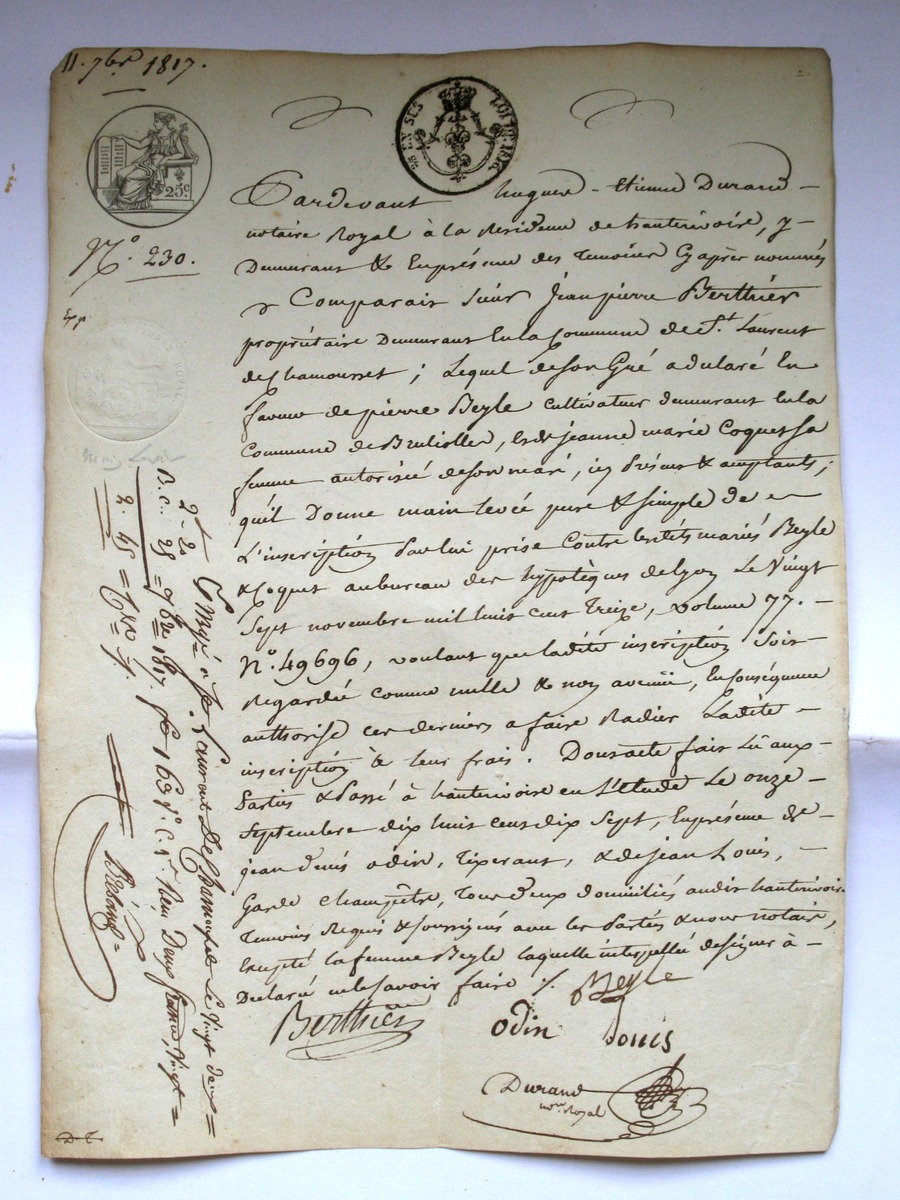 11. 7bre 1817.
25 c.
N.º 230.
Exp.
Pardevant hugues-Etienne Durand
notaire Royal à la Residence de hauterivoire, y
Demeurant & Enprésence des temoins Cy après nommés
& Comparait Sieur Jean pierre Berthier
propriétaire Demeurant En la Commune de St. Laurent
de Chamousset ; Lequel de son Gré a déclaré En
faveur de pierre Beyle cultivateur demeurant En la
Commune de Brulliolles, & de jeanne marie Coquet sa
femme autorisée de son mari, icy présens & acceptants ;
quil Donne main levée pure & simple de
L'inscription par lui prise contre lesdits mariés Beyle
& Coquet au bureau des hypotèques de Lyon Le Vingt
Sept novembre mil huit cent treize, volume 77.
N.º 49696, voulant que ladite inscription Soit
Regardée comme nulle & non avenüe, En conséquence
authorise ces derniers a faire Radier Ladite
inscription à leur frais. Dont acte fait Lû aux
Parties & Passé à hauterivoire en L'étude Le onze
Septembre dix huit cent dix sept, En présence de
jean denis odin, tixerant, & de jean Louis,
Garde champêtre, tous deux domiciliés audit hauterivoire
temoins Requis & soussignés avec les Parties & nous notaire,
Excepté la femme Beyle laquelle interpellée de signer à
Declaré ne le savoir faire ./.
Beyle
Berthier
odin Louis
Durand
nore Royal
Enregé à St. Laurent De Chamousset Le Vingt deux
7bre 1817. fo 163 Vo C. 1re Reçu Deux francs Vingt
2 - 20
D.c. 25
2. 45